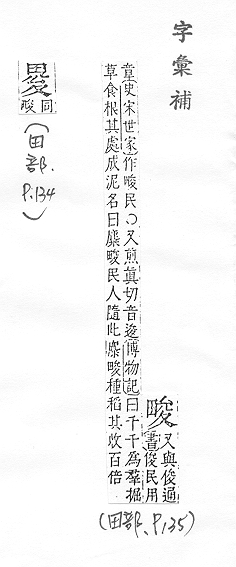 字彙補
畯 又與俊通
書俊民用
章史宋世家作畯民〇又煎真切音逡博物記曰千千為羣掘
草食根其處成泥名曰麋畯民人隨此麋畯種稻其收百倍
(田部.P.135)
同
畯
(田部.P.134)